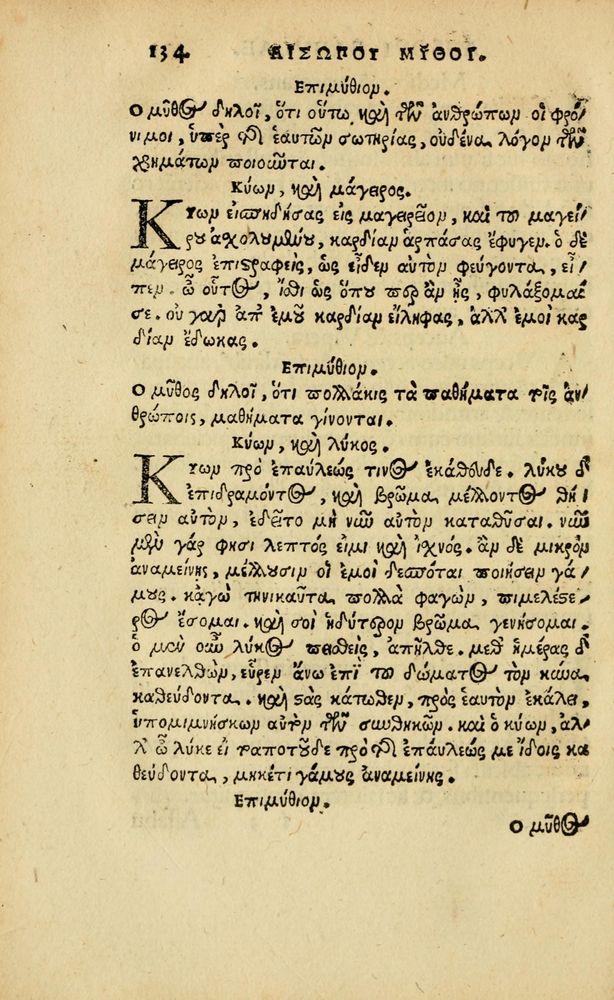 134 ΑΙΣΩΠΟΥ ΜΥΘΟΙ.
Επιμύθιον.
Ο μῦθος δηλοῖ, ὅτι οὕτω καὶ τῶν ἀνθρώπων οἱ φρό/
νιμοι, ὑπὲρ τῆς ἑαυτῶν σωτηρίας, οὐδένα λόγον τῶν
χρημάτων ποιοῦνται.
Κύων, καὶ μάγειρος.
Κύων εἰσπηδήσας εἰς μαγειρεῖον, καὶ τοῦ μαγεί/
ρου ἀχολουμένου, καρδίαν ἁρπάσας ἔφυγεν. ὁ δὲ
μάγειρος ἐπιστραφεὶς, ὡς εἶδεν αὐτὸν φεύγοντα, εἶ/
πεν. ὦ οὗτος, ἴσθι ὡς ὅπου περ ἂν ᾖς, φυλάξομαί
σε. οὐ γὰρ ἀπ' ἐμοῦ καρδίαν εἴληφας, ἀλλ' ἐμοὶ καρ
δίαν ἔδωκας.
Επιμύθιον.
Ο μῦθος δηλοῖ, ὅτι πολλάκις τὰ παθήματα τοῖς ἀν/
θρώποις, μαθήματα γίνονται.
Κύων, καὶ λύκος.
Κύων πρὸ ἐπαύλεώς τινος ἐκάθευδε. λύκου δ'
ἐπιδραμόντος, καὶ βρῶμα μέλλοντος θή/
σειν αὐτὸν, ἐδεῖτο μὴ νῦν αὐτὸν καταθῦσαι. νῦν
μὲν γάρ φησι λεπτός εἰμι καὶ ἰχνός. ἂν δὲ μικρὸν
ἀναμείνης, μέλλουσιν οἱ ἐμοὶ δεσπόται ποιήσειν γά/
μους. κἀγὼ τηνικαῦτα πολλὰ φαγὼν, πιμελέστε
ρος ἔσομαι. καὶ σοὶ ἡδύτερον βρῶμα γενήσομαι.
ὁ μὲν οὖν λύκος πεισθεὶς, ἀπῆλθε. μεθ' ἡμέρας δ'
ἐπανελθὼν, εὗρεν ἄνω ἐπὶ τοῦ δώματος τὸν κύνα
καθεύδοντα. καὶ στὰς κάτωθεν, πρὸς ἑαυτὸν ἐκάλει,
ὑπομιμνήσκων αὐτὸν τῶν συνθηκῶν. καὶ ὁ κύων, ἀλ/
λ' ὦ λύκε εἰ τὸ ἀποτοῦδε πρὸ τῆς ἐπαύλεώς με ἴδοις κα
θεύδοντα, μηκέτι γάμους ἀναμείνης.
Επιμύθιον.
Ο μῦθος